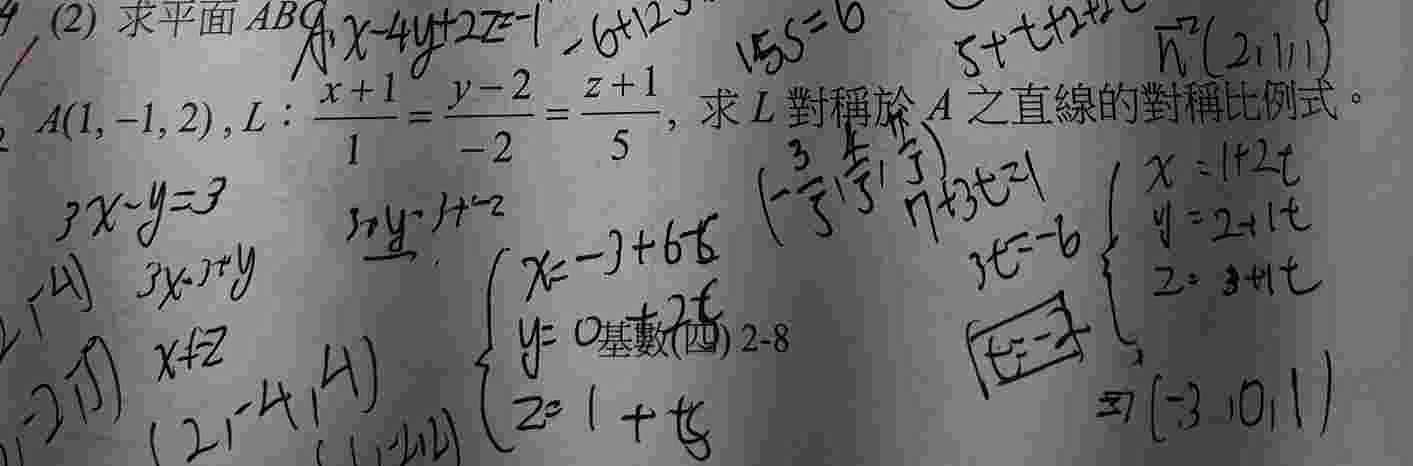 (2) 求平面 ABC
x-4y+2z=-1
-6+12
15s=6
5+t+2+2t
n(2,1,1)
A(1, −1, 2) , L : x+1/1 = y−2/−2 = z+1/5 , 求 L 對稱於 A 之直線的對稱比例式。
3x-y=3
3x=3+y
x+z
(-3/5, 4/5,
7+3t=1
3t=-6
t=-2
x=-3+6s
y=0+2s
z=1+s
x=1+2t
y=2+1t
z=3+1t
⇒(-3,0,1)
(2,-4,4)
(1,-2,2)
基數(四) 2-8